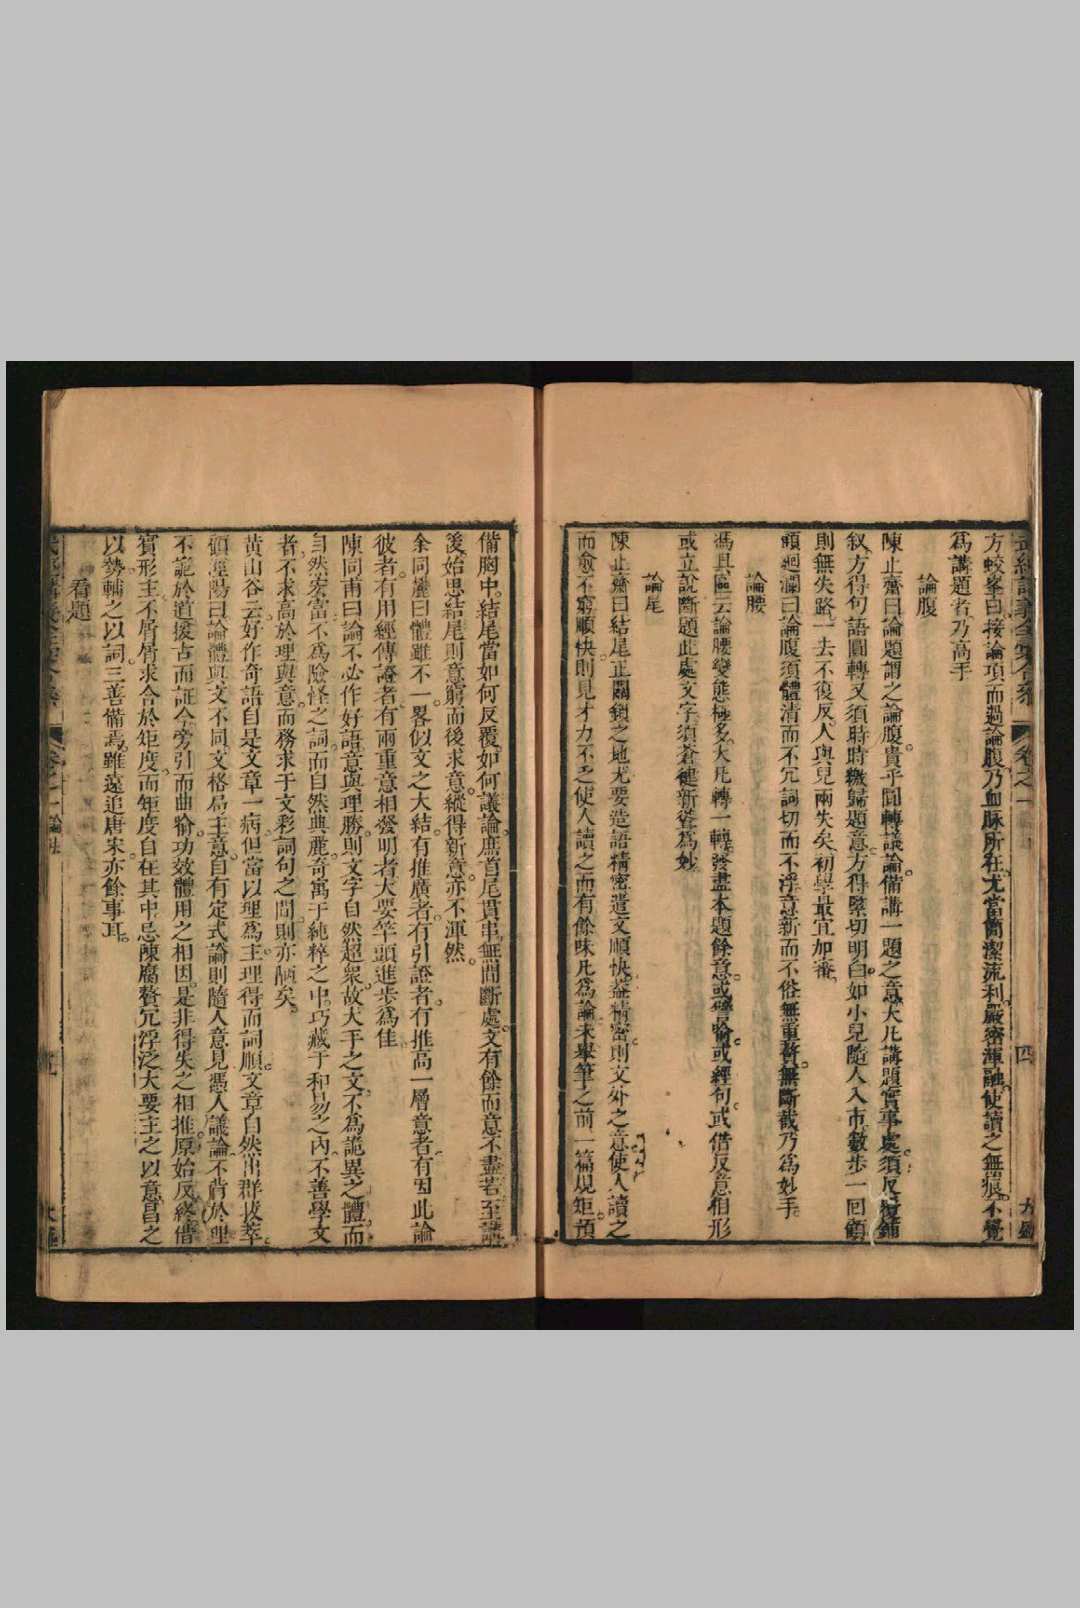 方蛟峯曰接論項而過論腹乃血脉所在尤當簡潔流利嚴密渾融使讀之無痕不覺
爲講題者乃高手
論腹
陳止齋曰論題謂之論腹貴乎圓轉議論備講一題之意大凡講題實事處須反覆鋪
叙方得句語圓轉又須時時繳歸題意方得緊切明白如小兒隨人入市數步一回顧
則無失路一去不復反人與兒兩失矣初學最宜加審
顧迴瀾曰論腹須體清而不冗詞切而不浮意新而不俗無重贅無斷截乃爲妙手
論腰
馮具區云論腰變態極多大凡轉一轉發盡本題餘意或譬喻或經句或借反意相形
或立說斷題此處文字須蒼健新蒼爲妙
論尾
陳止齋曰結尾正關鎖之地尤要造語精密遣文順快益精密則文外之意使人讀之
而愈不窮順快則見才力不乏使人讀之而有餘味凡爲論未舉筆之前一篇規矩預
備胸中結尾當如何反覆如何議論庶首尾貫串無間斷處文有餘而意不盡若至講
後始思結尾則意窮而後求意縱得新意亦不渾然
余同麓曰體雖不一畧似文之大結有推廣者有引證者有推高一層意者有因此論
彼者有用經傳證者有兩重意相發明者大要竿頭進步爲佳
陳同甫曰論不必作好語意與理勝則文字自然超衆故大手之文不爲詭異之體而
自然宏富不爲險怪之詞而自然典麗奇寓于純粹之中巧藏于和易之內不善學文
者不求高於理與意而務求于文彩詞句之間則亦陋矣
黃山谷云好作奇語自是文章一病但當以理爲主理得而詞順文章自然出群拔萃
顧涇陽曰論體與文不同文格局主意自有定式論則隨人意見憑人議論不背於理
不詭於道援古而証今旁引而曲喻功效體用之相因是非得失之相推原始反終借
賓形主不屑屑求合於矩度而矩度自在其中忌陳腐贅冗浮泛大要主之以意昌之
以勢輔之以詞三善備焉雖遠追唐宋亦餘事耳
看題